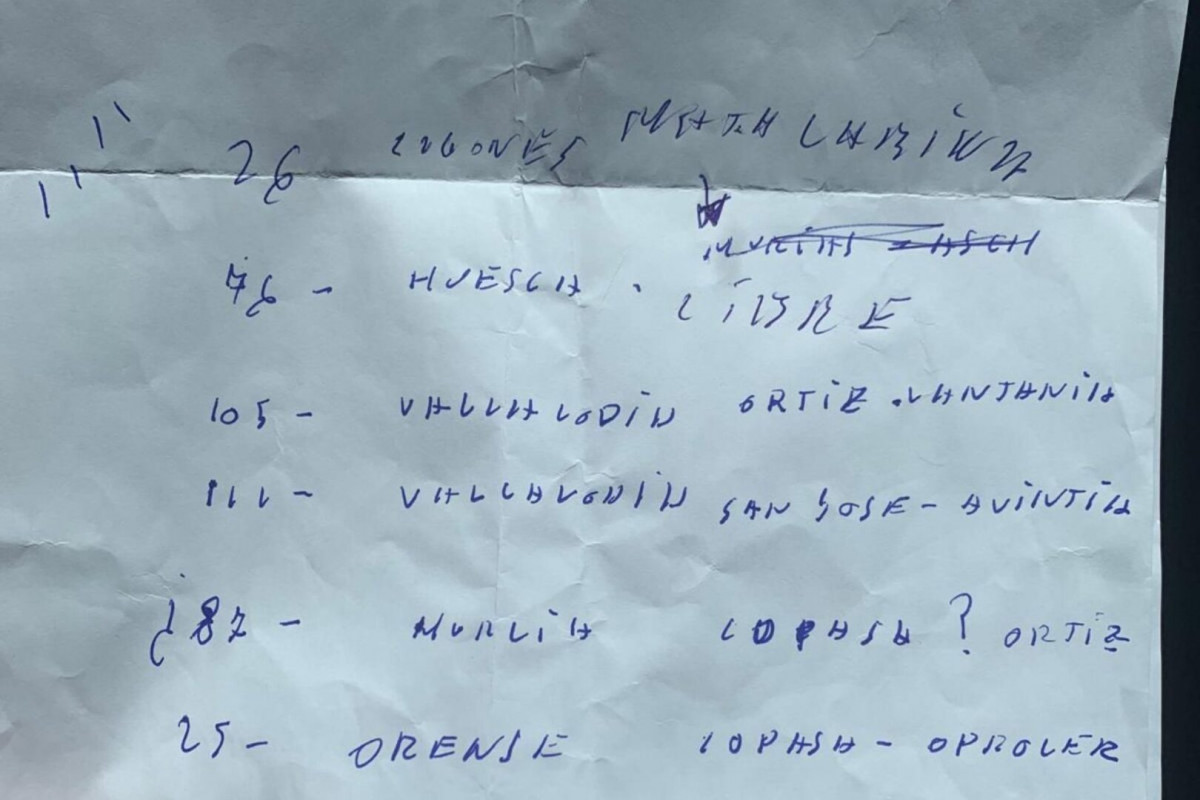 26 LUGONES MATA LARINZZ
MURIAS
76 - HUESCA . LIBRE
105 - VALLALODID ORTIZ . VANTANIA
111 - VALLALODID SAN JOSE - AVINTIA
¿ 87 - MURCIA COPASA ? ORTIZ
25 - ORENSE COPASA - OPROLER